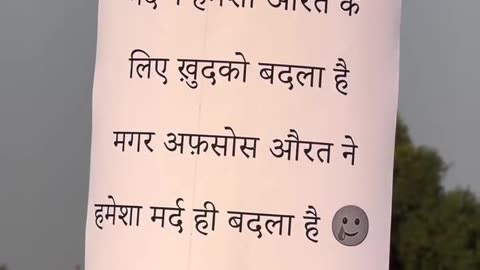 ने हमेशा औरत के
लिए ख़ुदको बदला है
मगर अफ़सोस औरत ने
हमेशा मर्द ही बदला है 🥲